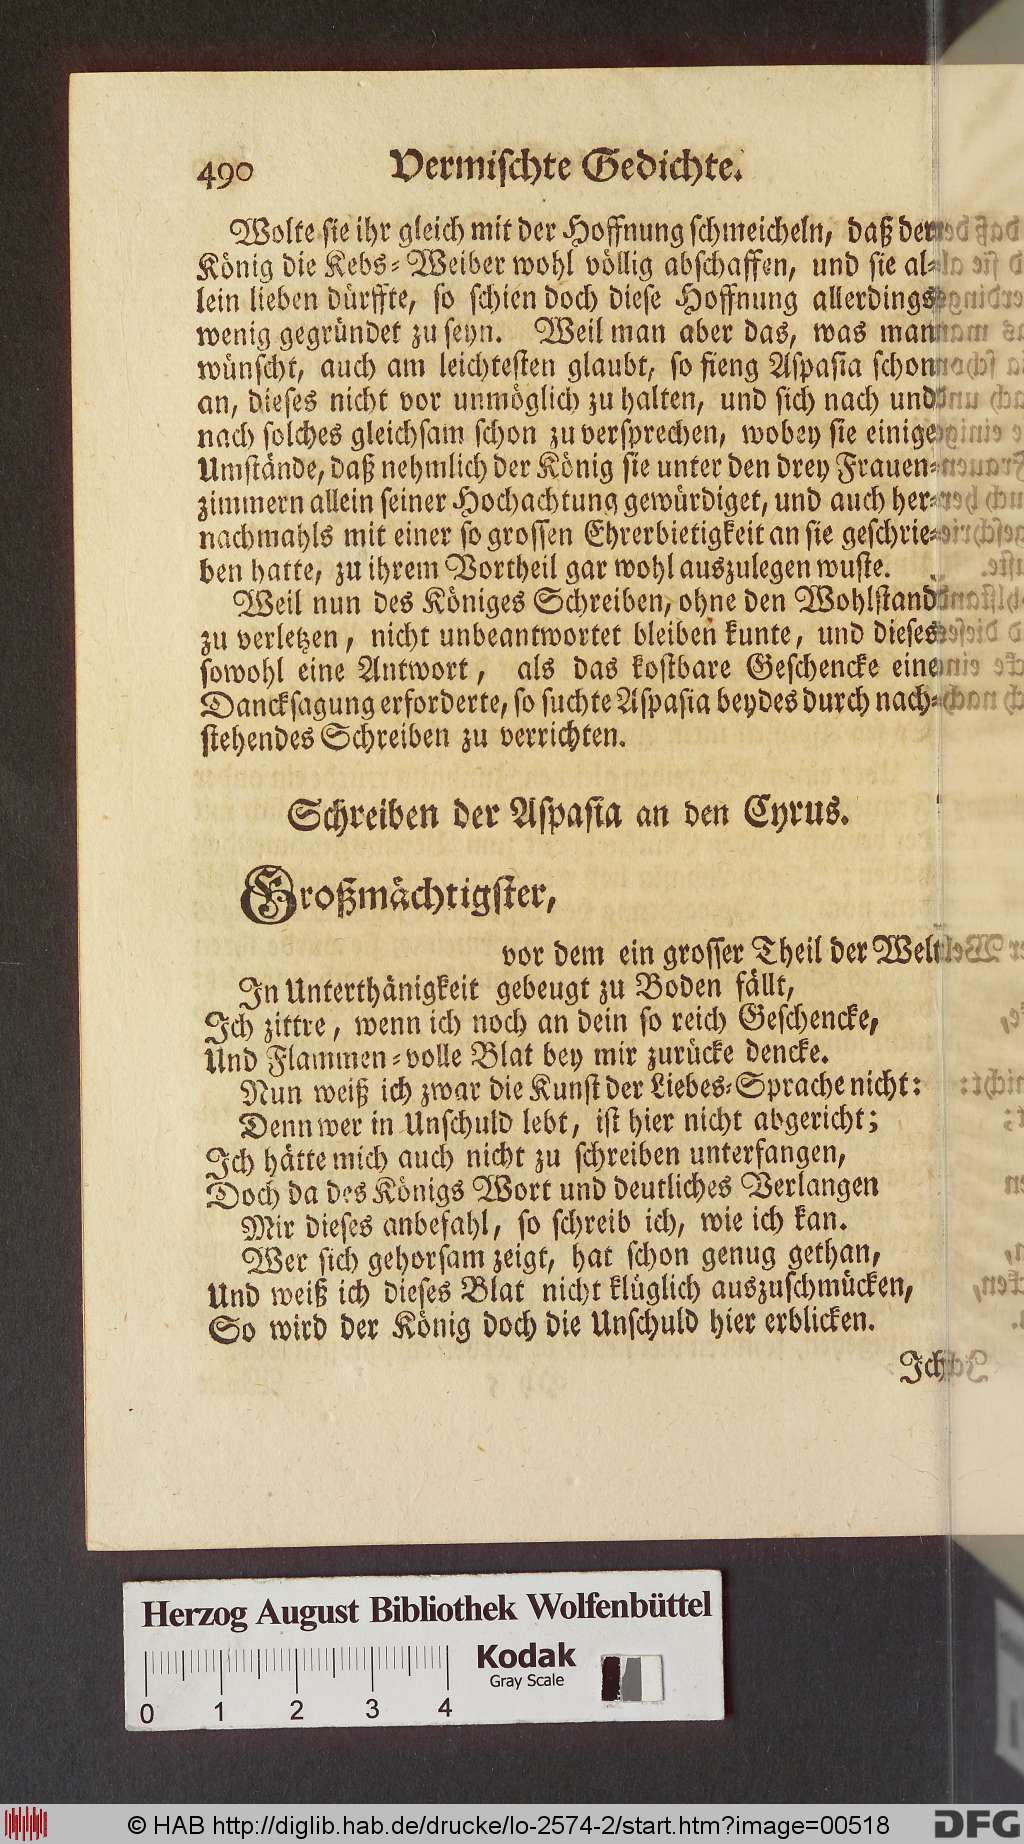 490 Vermischte Gedichte.
Wolte sie ihr gleich mit der Hoffnung schmeicheln, daß der
König die Kebs-Weiber wohl völlig abschaffen, und sie al-
lein lieben dürffte, so schien doch diese Hoffnung allerdings
wenig gegründet zu seyn. Weil man aber das, was man
wünscht, auch am leichtesten glaubt, so fieng Aspasia schon
an, dieses nicht vor unmöglich zu halten, und sich nach und
nach solches gleichsam schon zu versprechen, wobey sie einige
Umstände, daß nehmlich der König sie unter den drey Frauen-
zimmern allein seiner Hochachtung gewürdiget, und auch her-
nachmahls mit einer so grossen Ehrerbietigkeit an sie geschrie-
ben hatte, zu ihrem Vortheil gar wohl auszulegen wuste.
Weil nun des Königes Schreiben, ohne den Wohlstand
zu verletzen, nicht unbeantwortet bleiben kunte, und dieses
sowohl eine Antwort, als das kostbare Geschencke eine
Dancksagung erforderte, so suchte Aspasia beydes durch nach-
stehendes Schreiben zu verrichten.
Schreiben der Aspasia an den Cyrus.
Großmächtigster,
vor dem ein grosser Theil der Welt
In Unterthänigkeit gebeugt zu Boden fällt,
Ich zittre, wenn ich noch an dein so reich Geschencke,
Und Flammen-volle Blat bey mir zurücke dencke.
Nun weiß ich zwar die Kunst der Liebes-Sprache nicht:
Denn wer in Unschuld lebt, ist hier nicht abgericht;
Ich hätte mich auch nicht zu schreiben unterfangen,
Doch da des Königs Wort und deutliches Verlangen
Mir dieses anbefahl, so schreib ich, wie ich kan.
Wer sich gehorsam zeigt, hat schon genug gethan,
Und weiß ich dieses Blat nicht klüglich auszuschmücken,
So wird der König doch die Unschuld hier erblicken.
Ich
Herzog August Bibliothek Wolfenbüttel
Kodak
Gray Scale
0 1 2 3 4
© HAB http://diglib.hab.de/drucke/lo-2574-2/start.htm?image=00518
DFG